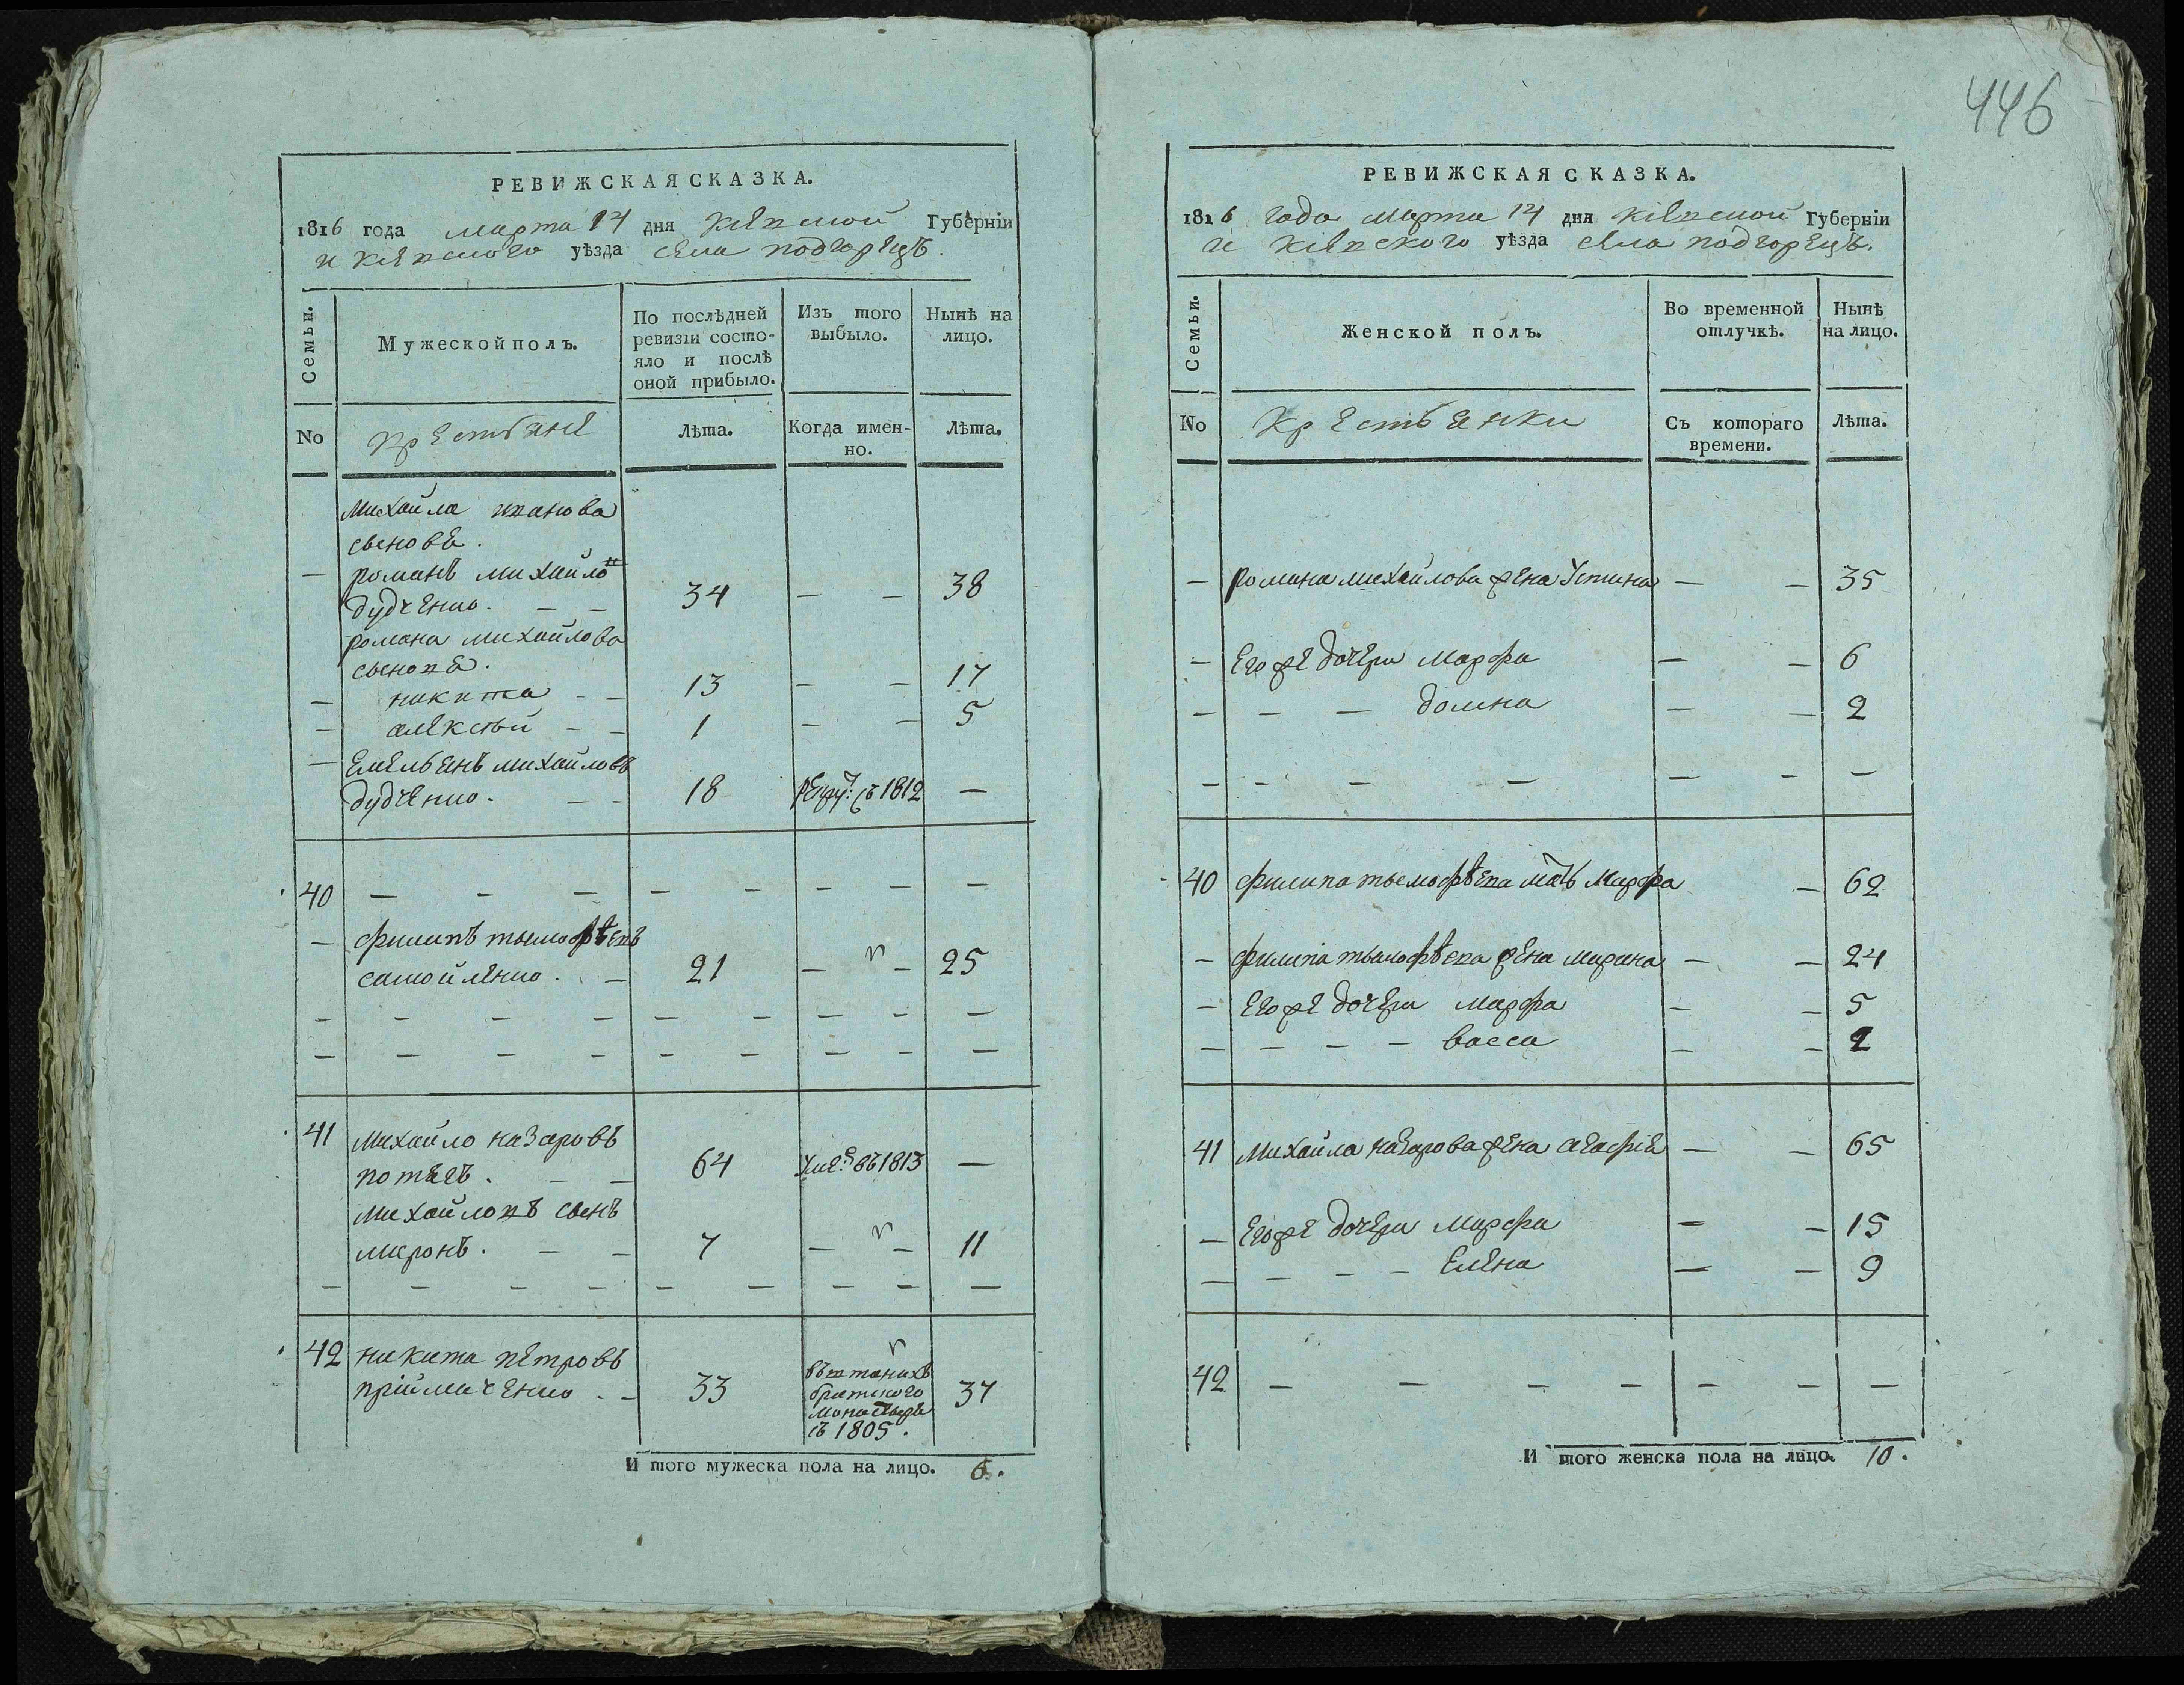 446
РЕВИЖСКАЯ СКАЗКА.
1816 года марта 14 дня Кіевской Губерніи
и Кіевского уѣзда села подгорецъ.
Семьи.
Мужеской полъ.
По послѣдней ревизіи состояло и послѣ оной прибыло.
Изъ того выбыло.
Нынѣ на лицо.
No
крестьяне
Лѣта.
Когда именно.
Лѣта.
Михайла иванова
сыновья.
— романъ михайловъ
дудченко. — — 34 — — 38
романа михайлова
сыновья.
— никита — — 13 — — 17
— алексѣй — — 1 — — 5
— Емельянъ михайловъ
дудченко. — — 18 рекру: съ 1812 —
40 — — — — — — — —
— филипъ тымофѣевъ
самойленко. — 21 — — 25
— — — — — — — — —
— — — — — — — — —
41 михайло назаровъ
потягъ. — — 64 уме: въ 1813 —
михайловъ сынъ
миронъ. — — 7 — — 11
— — — — — — — — —
42 никита петровъ
пріймиченко. — 33
братского
монастыря
съ 1805. 37
И того мужеска пола на лицо. 6.
РЕВИЖСКАЯ СКАЗКА.
1816 года марта 14 дня Кіевской Губерніи
и Кіевского уѣзда села подгорецъ.
Семьи.
Женской полъ.
Во временной отлучкѣ.
Нынѣ на лицо.
No
Крестьянки
Съ котораго времени.
Лѣта.
— романа михайлова жена Устина — — 35
— Егоже дочери марфа — — 6
— — — домна — — 2
— — — — — — —
40 филипа тымофѣева мать Марфа — 62
— филипа тымофѣева жена марина — — 24
— Егоже дочери марфа — — 5
— — — — васса — — 2
41 Михайла назарова жена агафія — — 65
— Егоже дочери марфа — — 15
— — — — Елена — — 9
42 — — — — — — —
И того женска пола на лицо. 10.